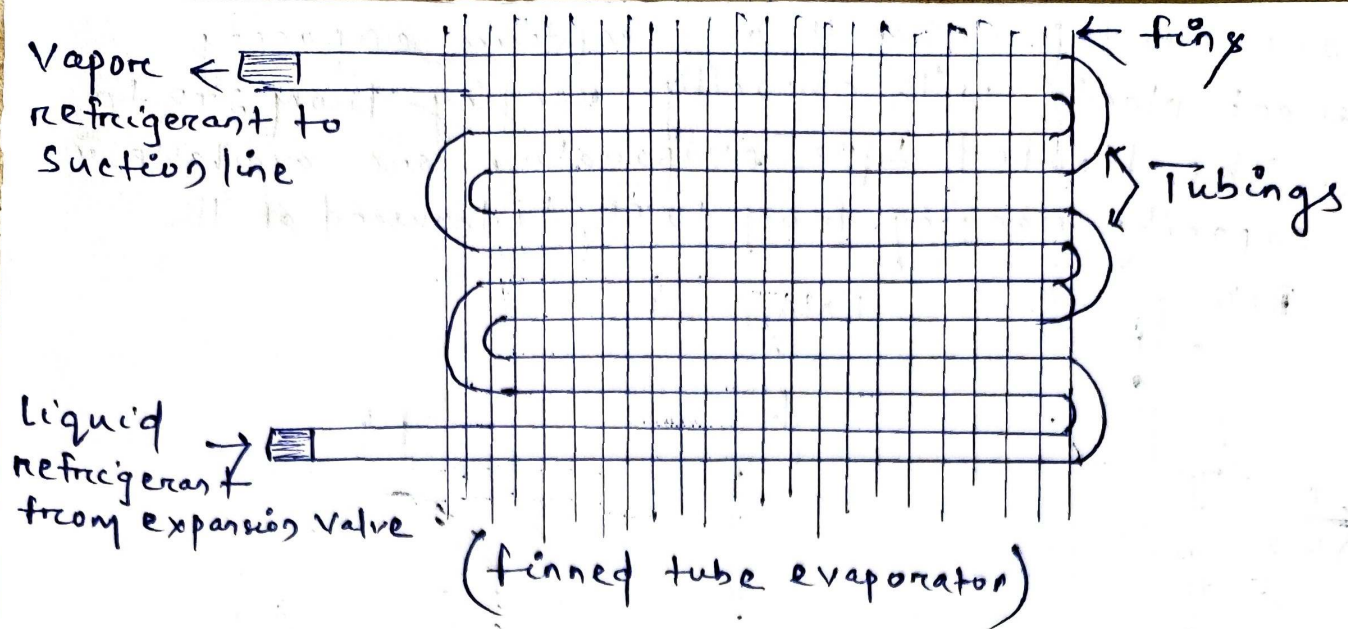 Vapore
refrigerant to
suction line
fins
Tubings
Liquid
refrigerant
from expansion valve
(finned tube evaporator)